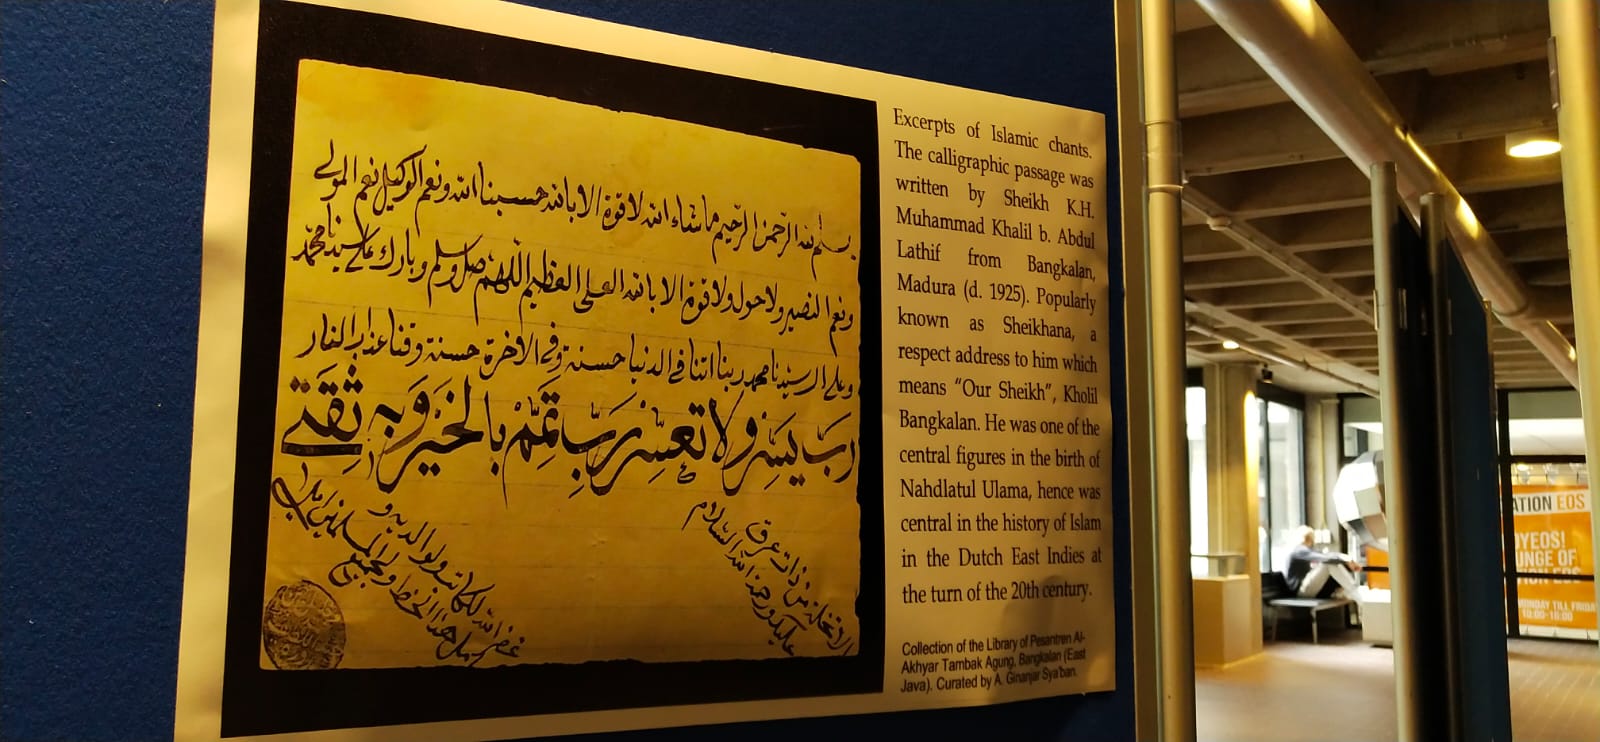 بسم الله الرحمن الرحيم ما شاء الله لا قوة الا بالله حسبنا الله ونعم الوكيل نعم المولى
ونعم النصير ولا حول ولا قوة الا بالله العلى العظيم اللهم صل وسلم وبارك على سيدنا محمد
وعلى ال سيدنا محمد ربنا اتنا فى الدنيا حسنة وفى الاخرة حسنة وقنا عذاب النار
رَبِّ يَسِّرْ وَلَا تُعَسِّرْ رَبِّ تَمِّمْ بِالْخَيْرِ وَبِهِ ثِقَتِي
غفر الله لكاتبه ولوالديه و
هذا الخط ولجميع المسلمين
ذات عرق
عليك ورحمة الله السلام
Excerpts of Islamic chants.
The calligraphic passage was
written by Sheikh K.H.
Muhammad Khalil b. Abdul
Lathif from Bangkalan,
Madura (d. 1925). Popularly
known as Sheikhana, a
respect address to him which
means “Our Sheikh”, Kholil
Bangkalan. He was one of the
central figures in the birth of
Nahdlatul Ulama, hence was
central in the history of Islam
in the Dutch East Indies at
the turn of the 20th century.
Collection of the Library of Pesantren Al-
Akhyar Tambak Agung, Bangkalan (East
Java). Curated by A. Ginanjar Sya'ban.
ATION EOS
OYEOS!
UNGE OF
MONDAY TILL FRIDA
10:00-16:00